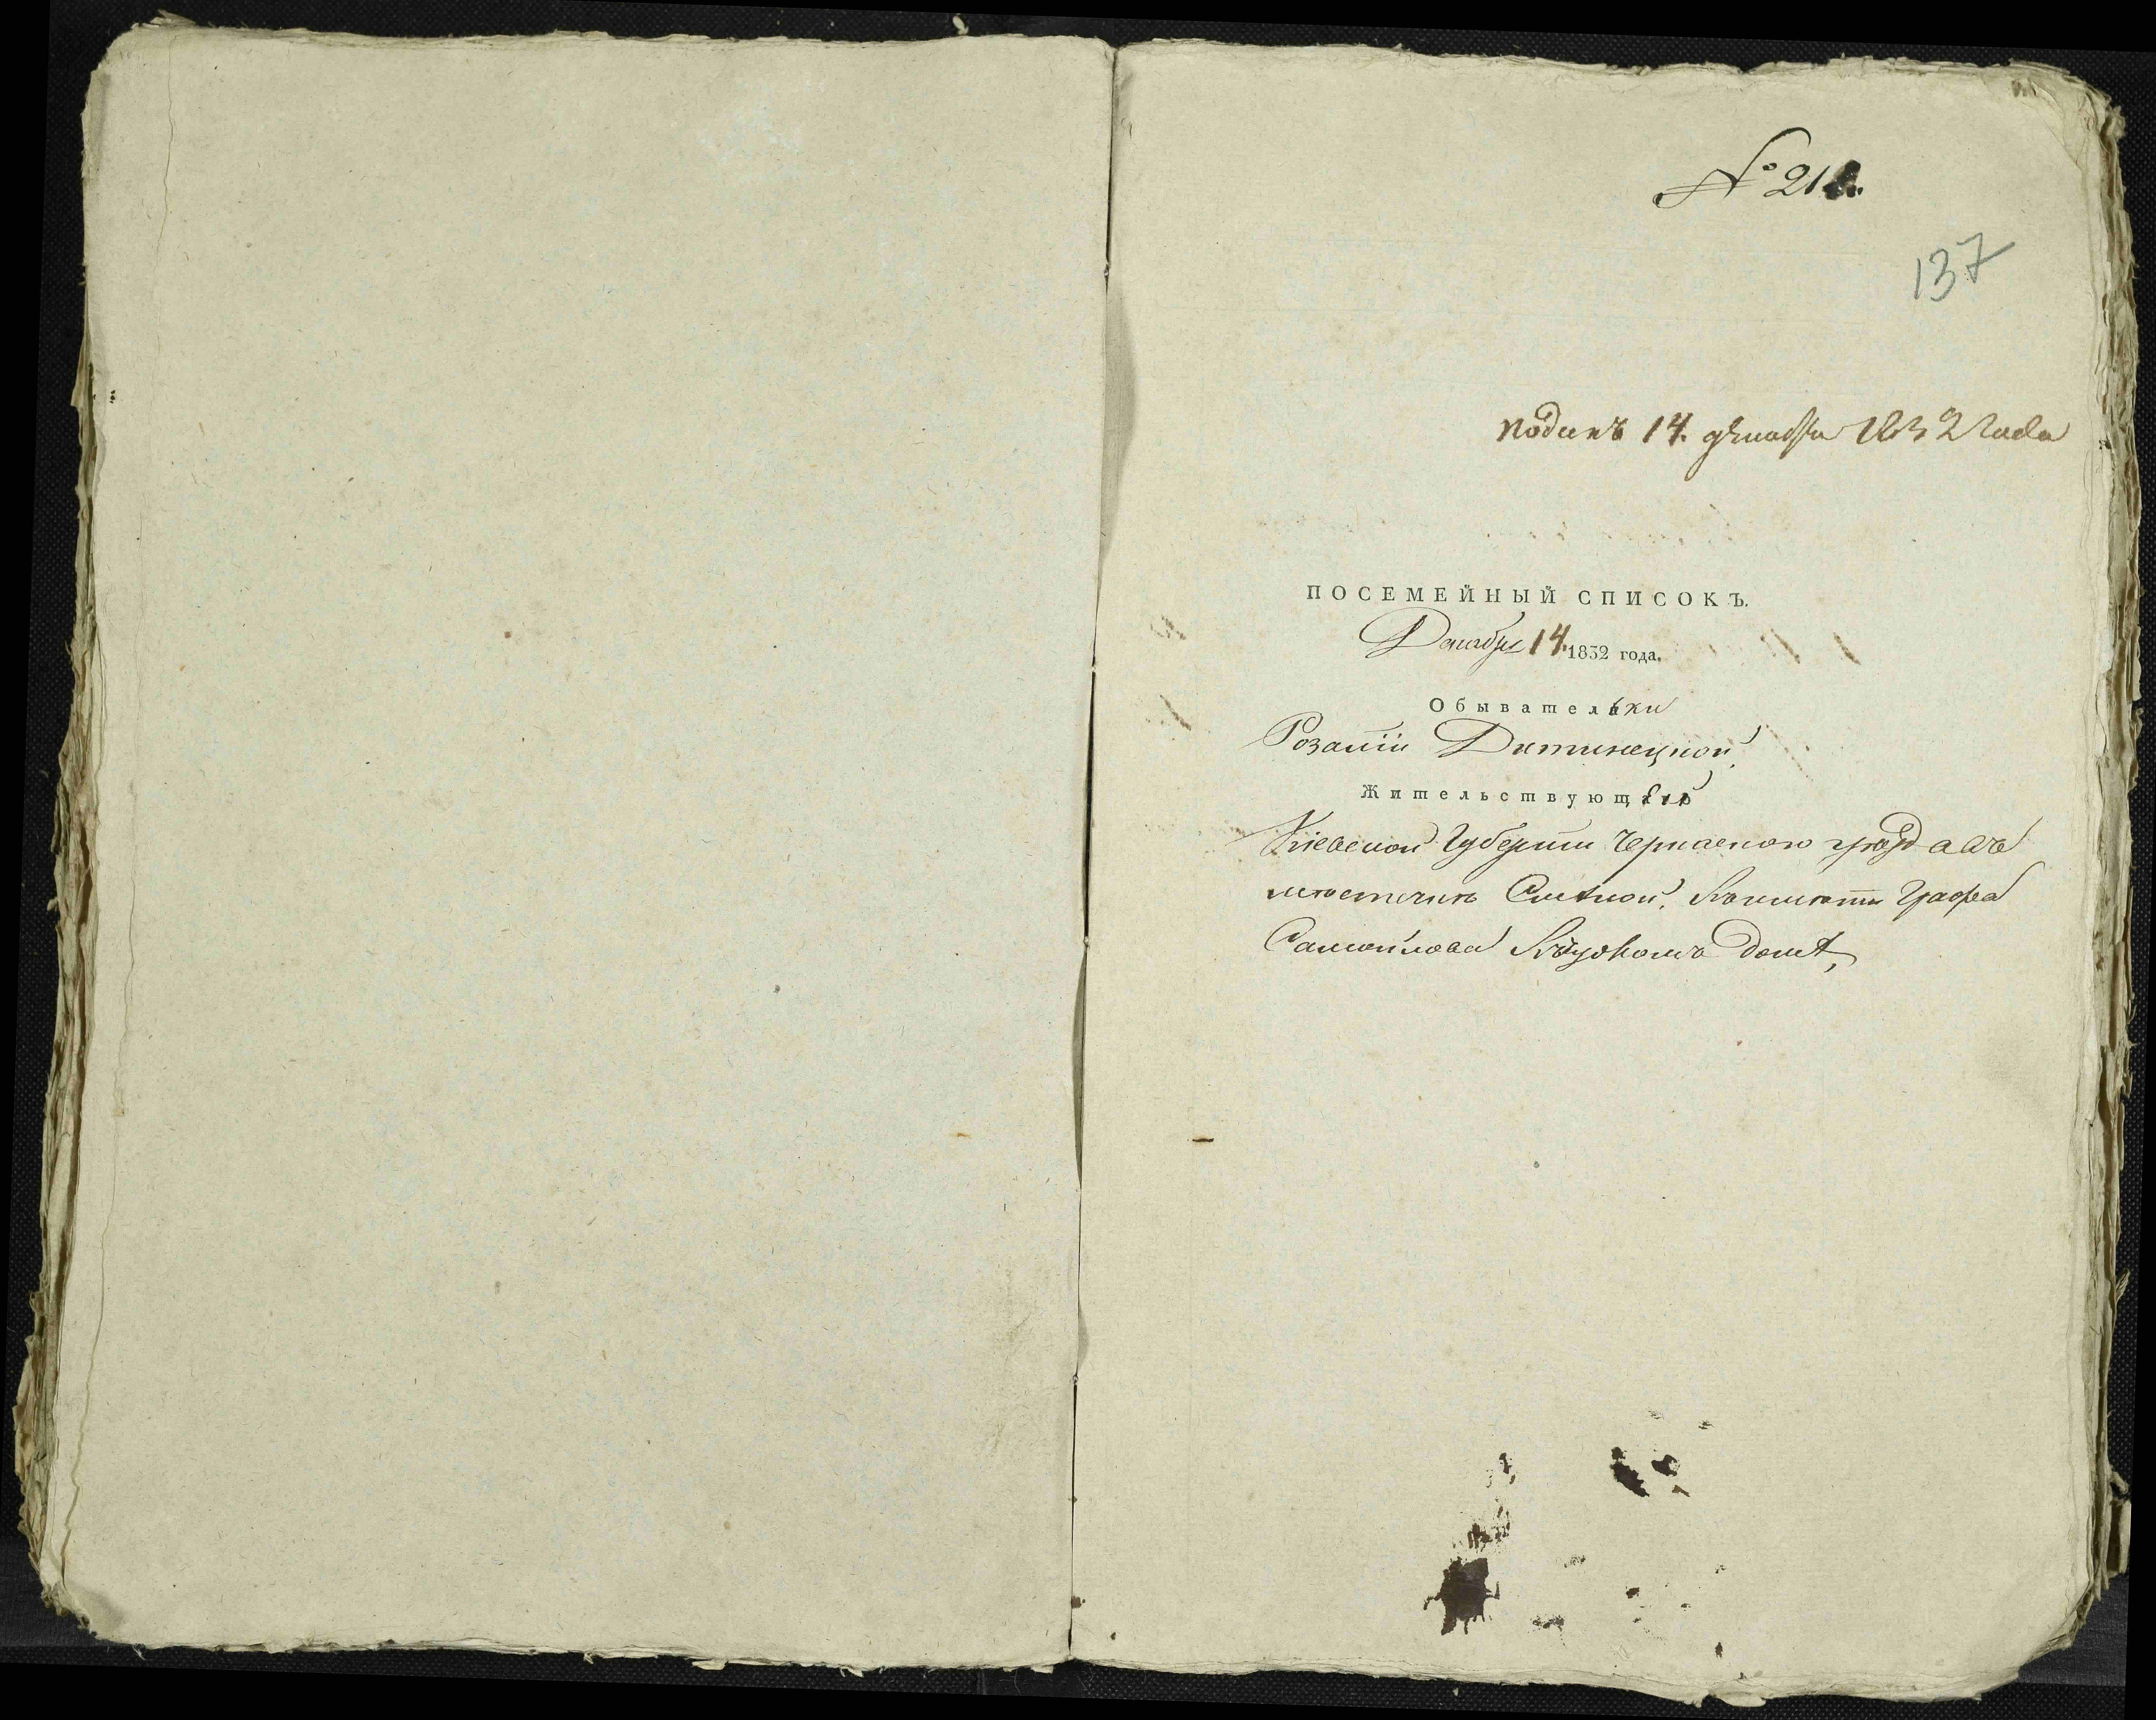 № 21
137
поданъ 14. декабря 1832 года
ПОСЕМЕЙНЫЙ СПИСОКЪ.
Декабря 14. 1832 года.
Обывательки
Розалiи Дитинецкой,
Жительствующей
Кiевской Губернiи Черкаского уѣзда въ
мѣстечкѣ Смѣлой, Графа
Самойлова домѣ,